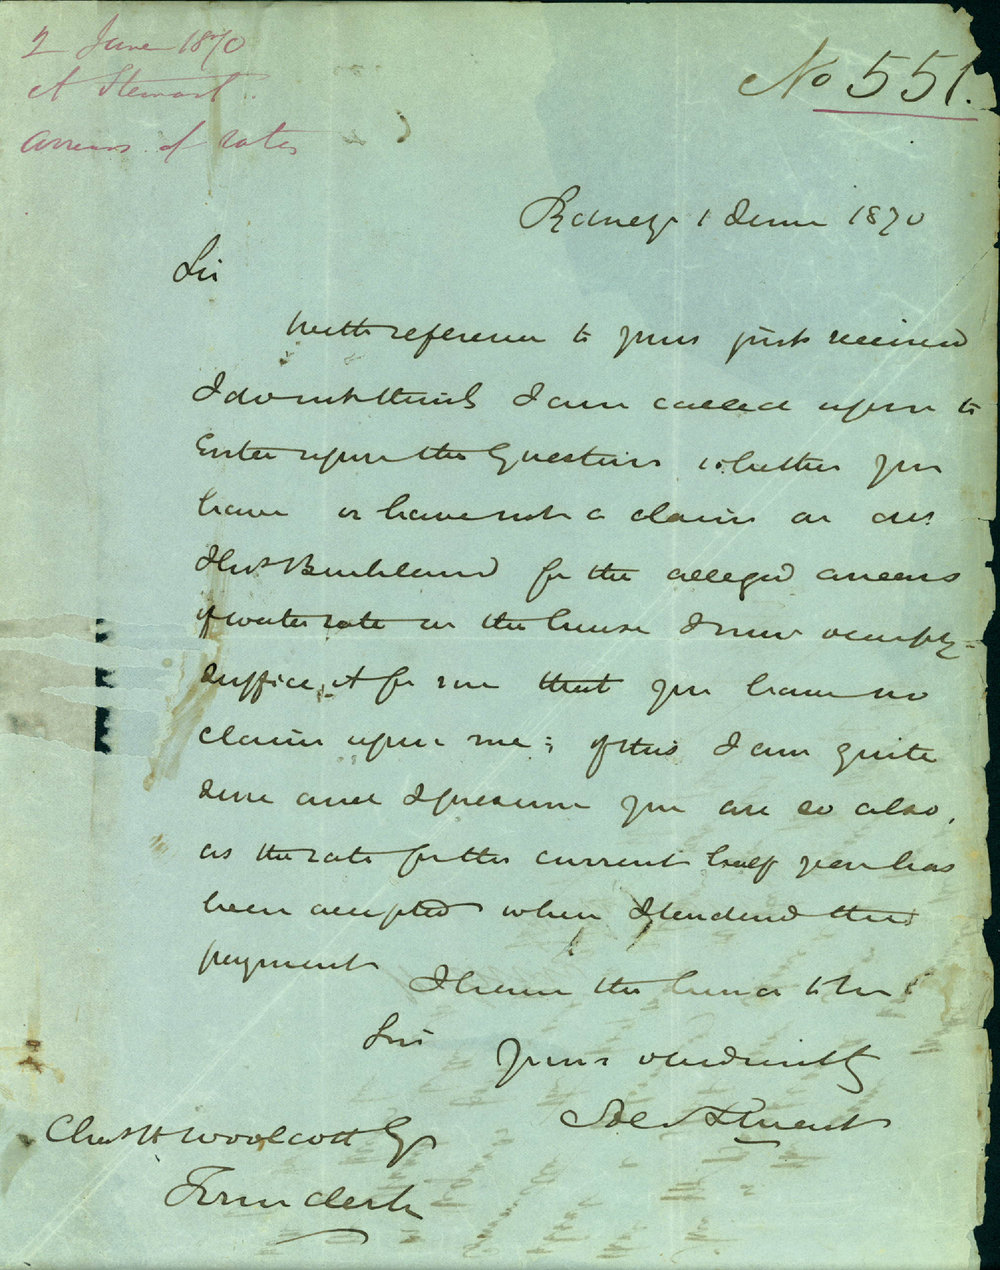 2 June 1870
A Stewart
arrears of rates
No 551.
Sydney 1 June 1870
Sir
With reference to yours just received
I do not think I am called upon to
Enter upon the Question whether you
have or have not a claim on
for the alleged arrears
of water rate on the house I now occupy -
Suffice it for me that you have no
claim upon me; of this I am quite
sure and I presume you are so also,
as the rate for the current half year has
been accepted when I tendered the
payment
I have the honor to be
Sir
Yours obediently
Stewart
Chas H Woolcott Esq
Town Clerk